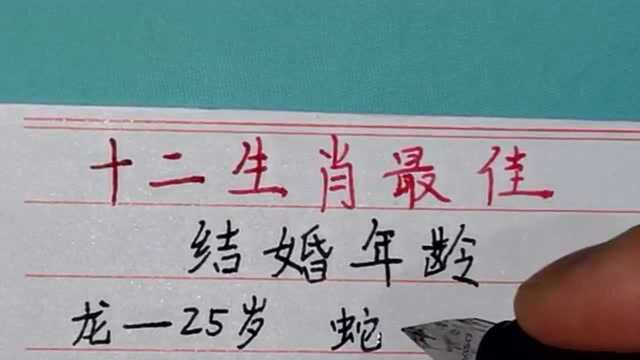 十二生肖最佳
结婚年龄
龙—25岁 蛇